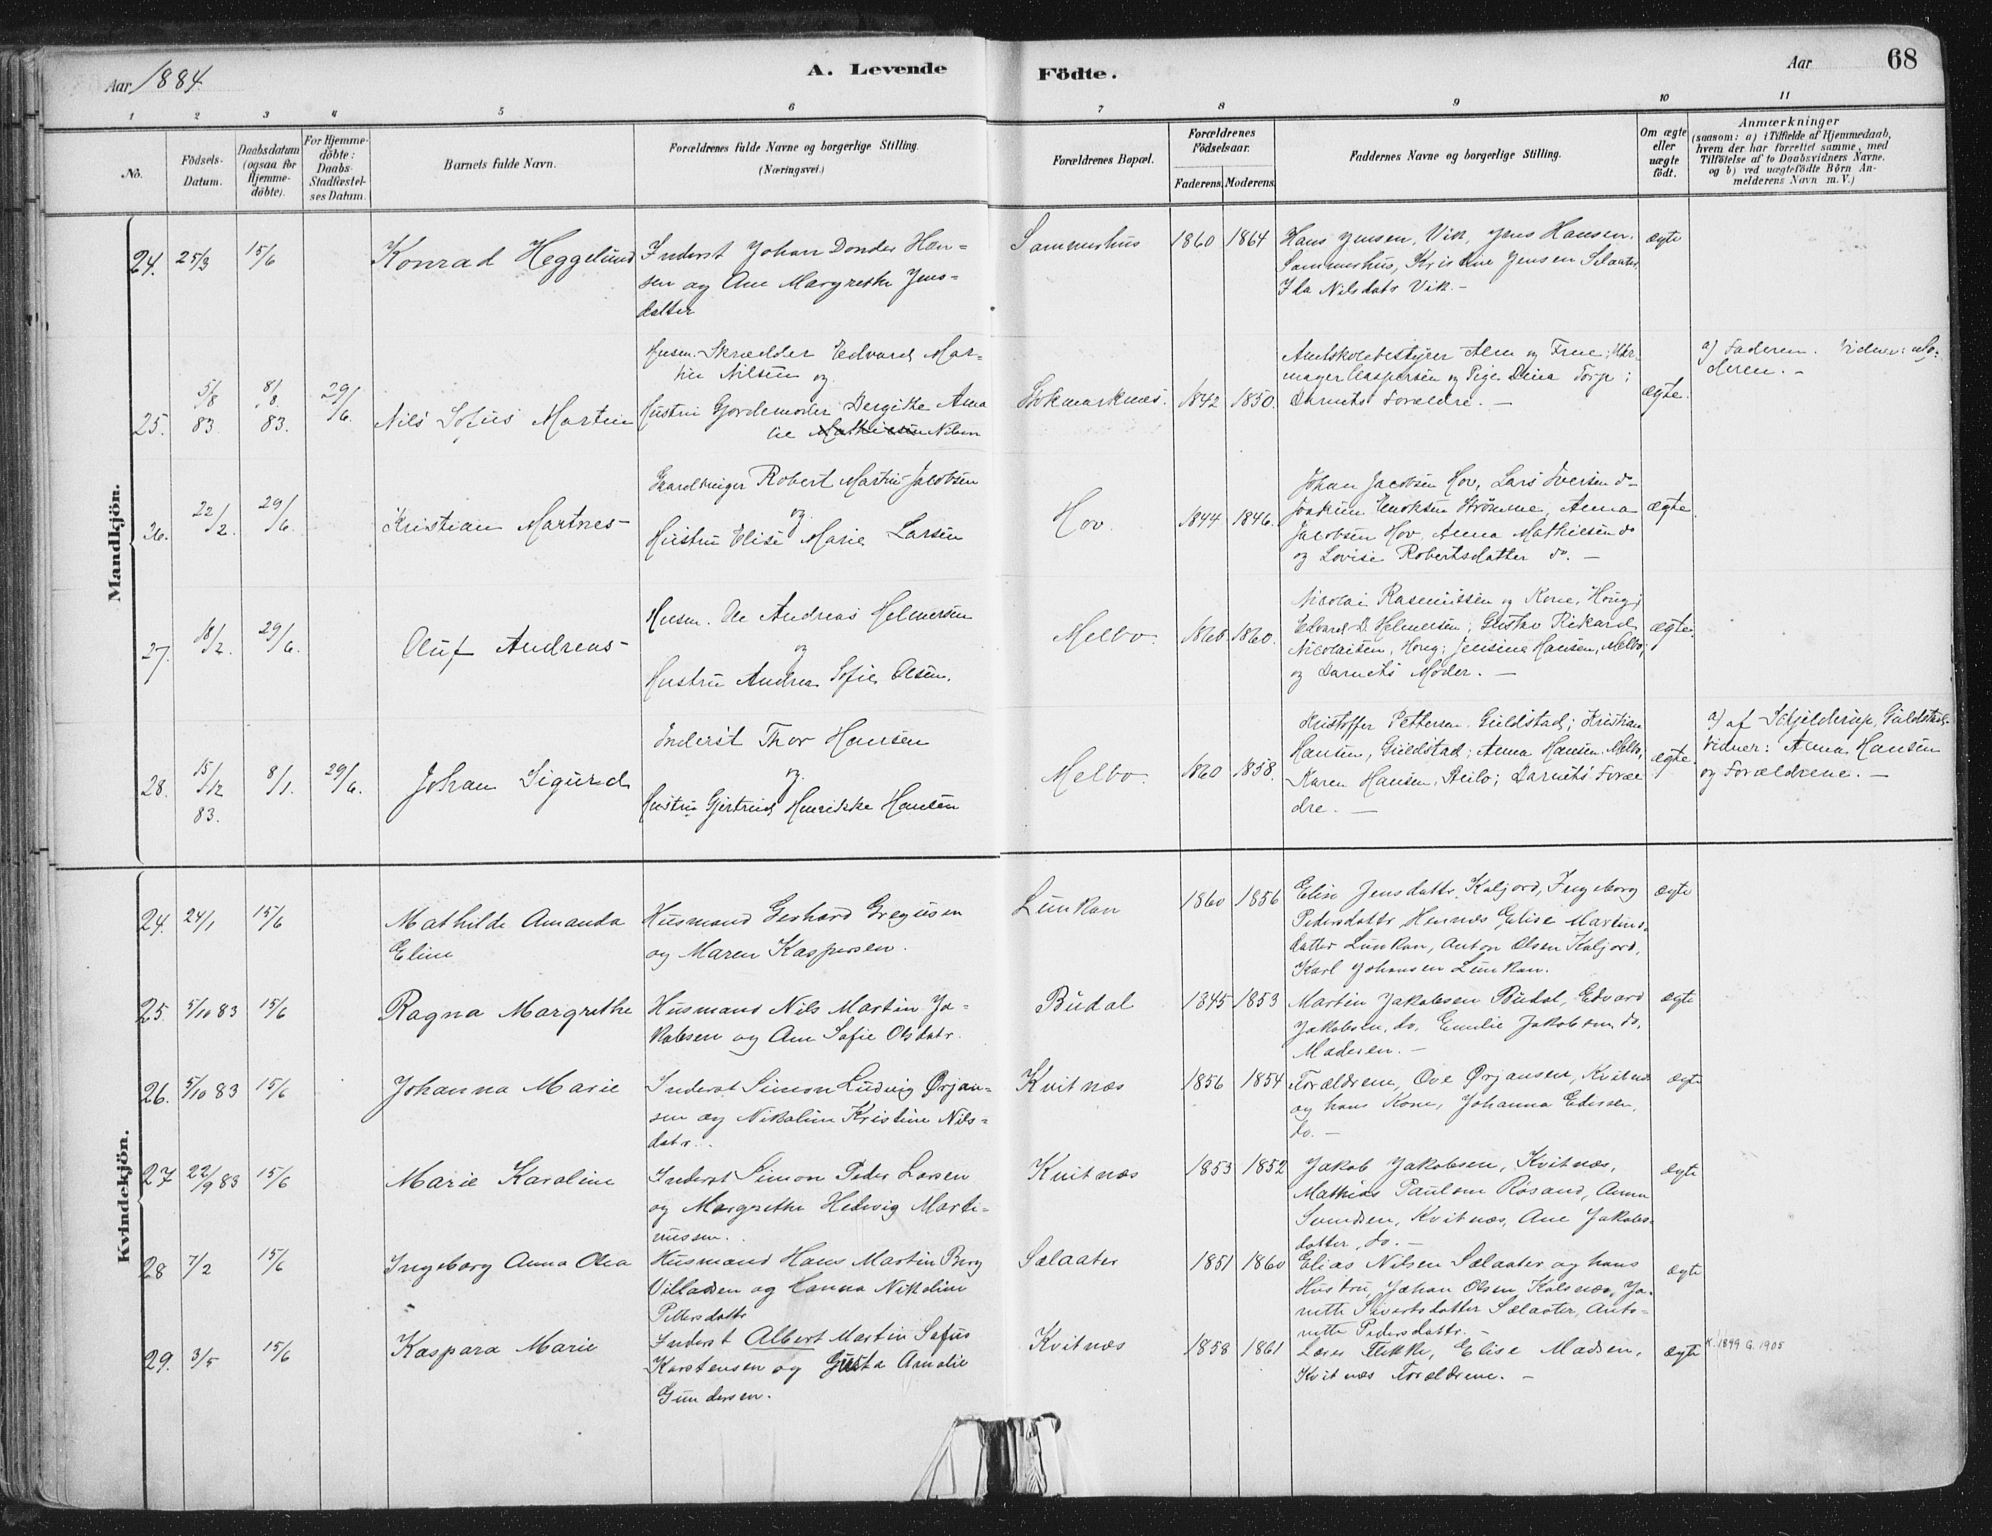 Aar 1884.
A. Levende
Födte.
Aar
68
1 2 3 4 5 6 7 8 9 10 11
No.
Födsels-
Datum.
Daabsdatum
(ogsaa for
Hjemme-
döbte).
For Hjemme-
döbte:
Daabs-
Stadfæstel-
ses Datum.
Barnets fulde Navn.
Forældrenes fulde Navne og borgerlige Stilling.
(Næringsvei.)
Forældrenes Bopæl.
Forældrenes
Födselsaar.
Faderens. Moderens.
Faddernes Navne og borgerlige Stilling.
Om ægte
eller
uægte
födt.
Anmærkninger
(saasom: a) i Tilfælde af Hjemmedaab,
hvem der har forrettet samme, med
Tilföielse af to Daabsvidners Navne.
og b) ved uægtefödte Börn An-
melderens Navn m. V.)
Mandkjön.
24. 25/3 15/6
Konrad Heggelund
Inderst Johan Donder Han-
sen og Ane Margrethe Jens-
datter
Sommerhus 1860 1864
Hans Jensen, Vik, Jens Hansen.
Sommerhus, Kristine Jensen Selaater
Ida Nilsdatr Vik. -
ægte
25. 5/8 83 8/8 83. 29/6.
Nils Sofus Martin
Husm. Skrædder Edvard Mar-
tin Nilsen og
Hustru Gjordemoder Bergitte Ama
lie Mathisen Nilsen
Stokmarknes. 1842 1850.
Amtskolebestyrer Alm og Frue; Uhr-
mager Caspersen og Pige Dina Torp;
Barnets Forældre. —
ægte.
a) Faderen. Vidner: Mo-
deren. -
26. 22/2. 29/6.
Kristian Martnes-
Gaardbruger Robert Martin Jacobsen
og
Hustru Elise Marie Larsen
Hov. 1844 1846.
Johan Jacobsen Hov, Lars Iversen do
Joakim Enoksen Strømme, Anna
Jacobsen Hov, Anna Mathiesen do
og Lovise Robertsdatter do. —
ægte
27. 18/2. 29/6.
Oluf Andreas-
Husm. Ole Andreas Helmersen
og
Hustru Andrea Sofie Olsen.
Melbo 1860.
Nicolai Rasmussen og Kone, Houg;
Edvard D. Helmersen; Gustav Rikard
Nicolaisen, Houg; Jensine Hansen, Melbo;
og Barnets Moder. —
ægte.
28. 15/12 83. 8/1. 29/6.
Johan Sigurd
Inderst Thor Hansen
og
Hustru Gjertrud Henrikke Hansen
Melbo. 1860 1858.
Kristoffer Pettersen Guldstad; Kristian
Hansen, Guldstad; Anna Hansen Melbo;
Karen Hansen, Melbo; Barnets Foræl
dre. —
ægte.
a) af Schjelderup, Guldstad.
Vidner: Anna Hansen
og Forældrene. —
Kvindekjön.
24. 24/1 15/6
Mathilde Amanda
Eline
Husmand Gerhard Gregusen
og Maren Kaspersen.
Lunkan 1860 1856
Elise Jensdattr Kaljord, Ingeborg
Pedersdattr Hennes Elise Martins-
datter Lunkan, Anton Olsen Kaljord,
Karl Johansen Lunkan.
ægte
25. 5/10 83 15/6
Ragna Margrethe
Husmand Nils Martin Ja-
kobsen og Ane Sofie Olsdatr.
Budal 1845 1853
Martin Jakobsen Budal, Edvard
Jakobsen, do. Emilie Jakobsen, do.
Moderen. -
ægte
26. 5/10 83 15/6
Johanna Marie
Inderst Simon Ludvig Ørjan-
sen og Nikoline Kristine Nils-
datr.
Kvitnæs 1856 1854
Forældrene, Ove Ørjansen, Kvitnæs
og hans Kone, Johanna
do. -
ægte
27 22/9 83 15/6
Marie Karoline
Inderst Simon Peder Larsen
og Margrethe Hedvig Marti-
nussen.
Kvitnæs 1853 1852
Jakob Jakobsen, Kvitnæs,
Mathias Paulsen Røsand, Anna
Svendsen, Kvitnæs, Ane Jakobs-
datter, do. -
ægte
28 7/2 15/6
Ingeborg Anna Olea
Husmand Hans Martin Berg
Villadsen og Hanna Nikoline
Pettersdattr
Selaater 1851 1860
Elias Nilsen Selaater og hans
Hustru, Johan Olsen Kalsnæs, Ja-
nette Sivertsdatter Selaater, Anto-
nette Pedersdattr. -
ægte
29. 3/5 15/6
Kaspara Marie
Inderst Albert Martin Sofus
Karstensen og Gusta Amalie
Gundersen.
Kvitnæs 1858 1861
Lars Flekke, Elise Madsen,
Kvitnæs Forældrene. -
ægte
K. 1899 G. 1905